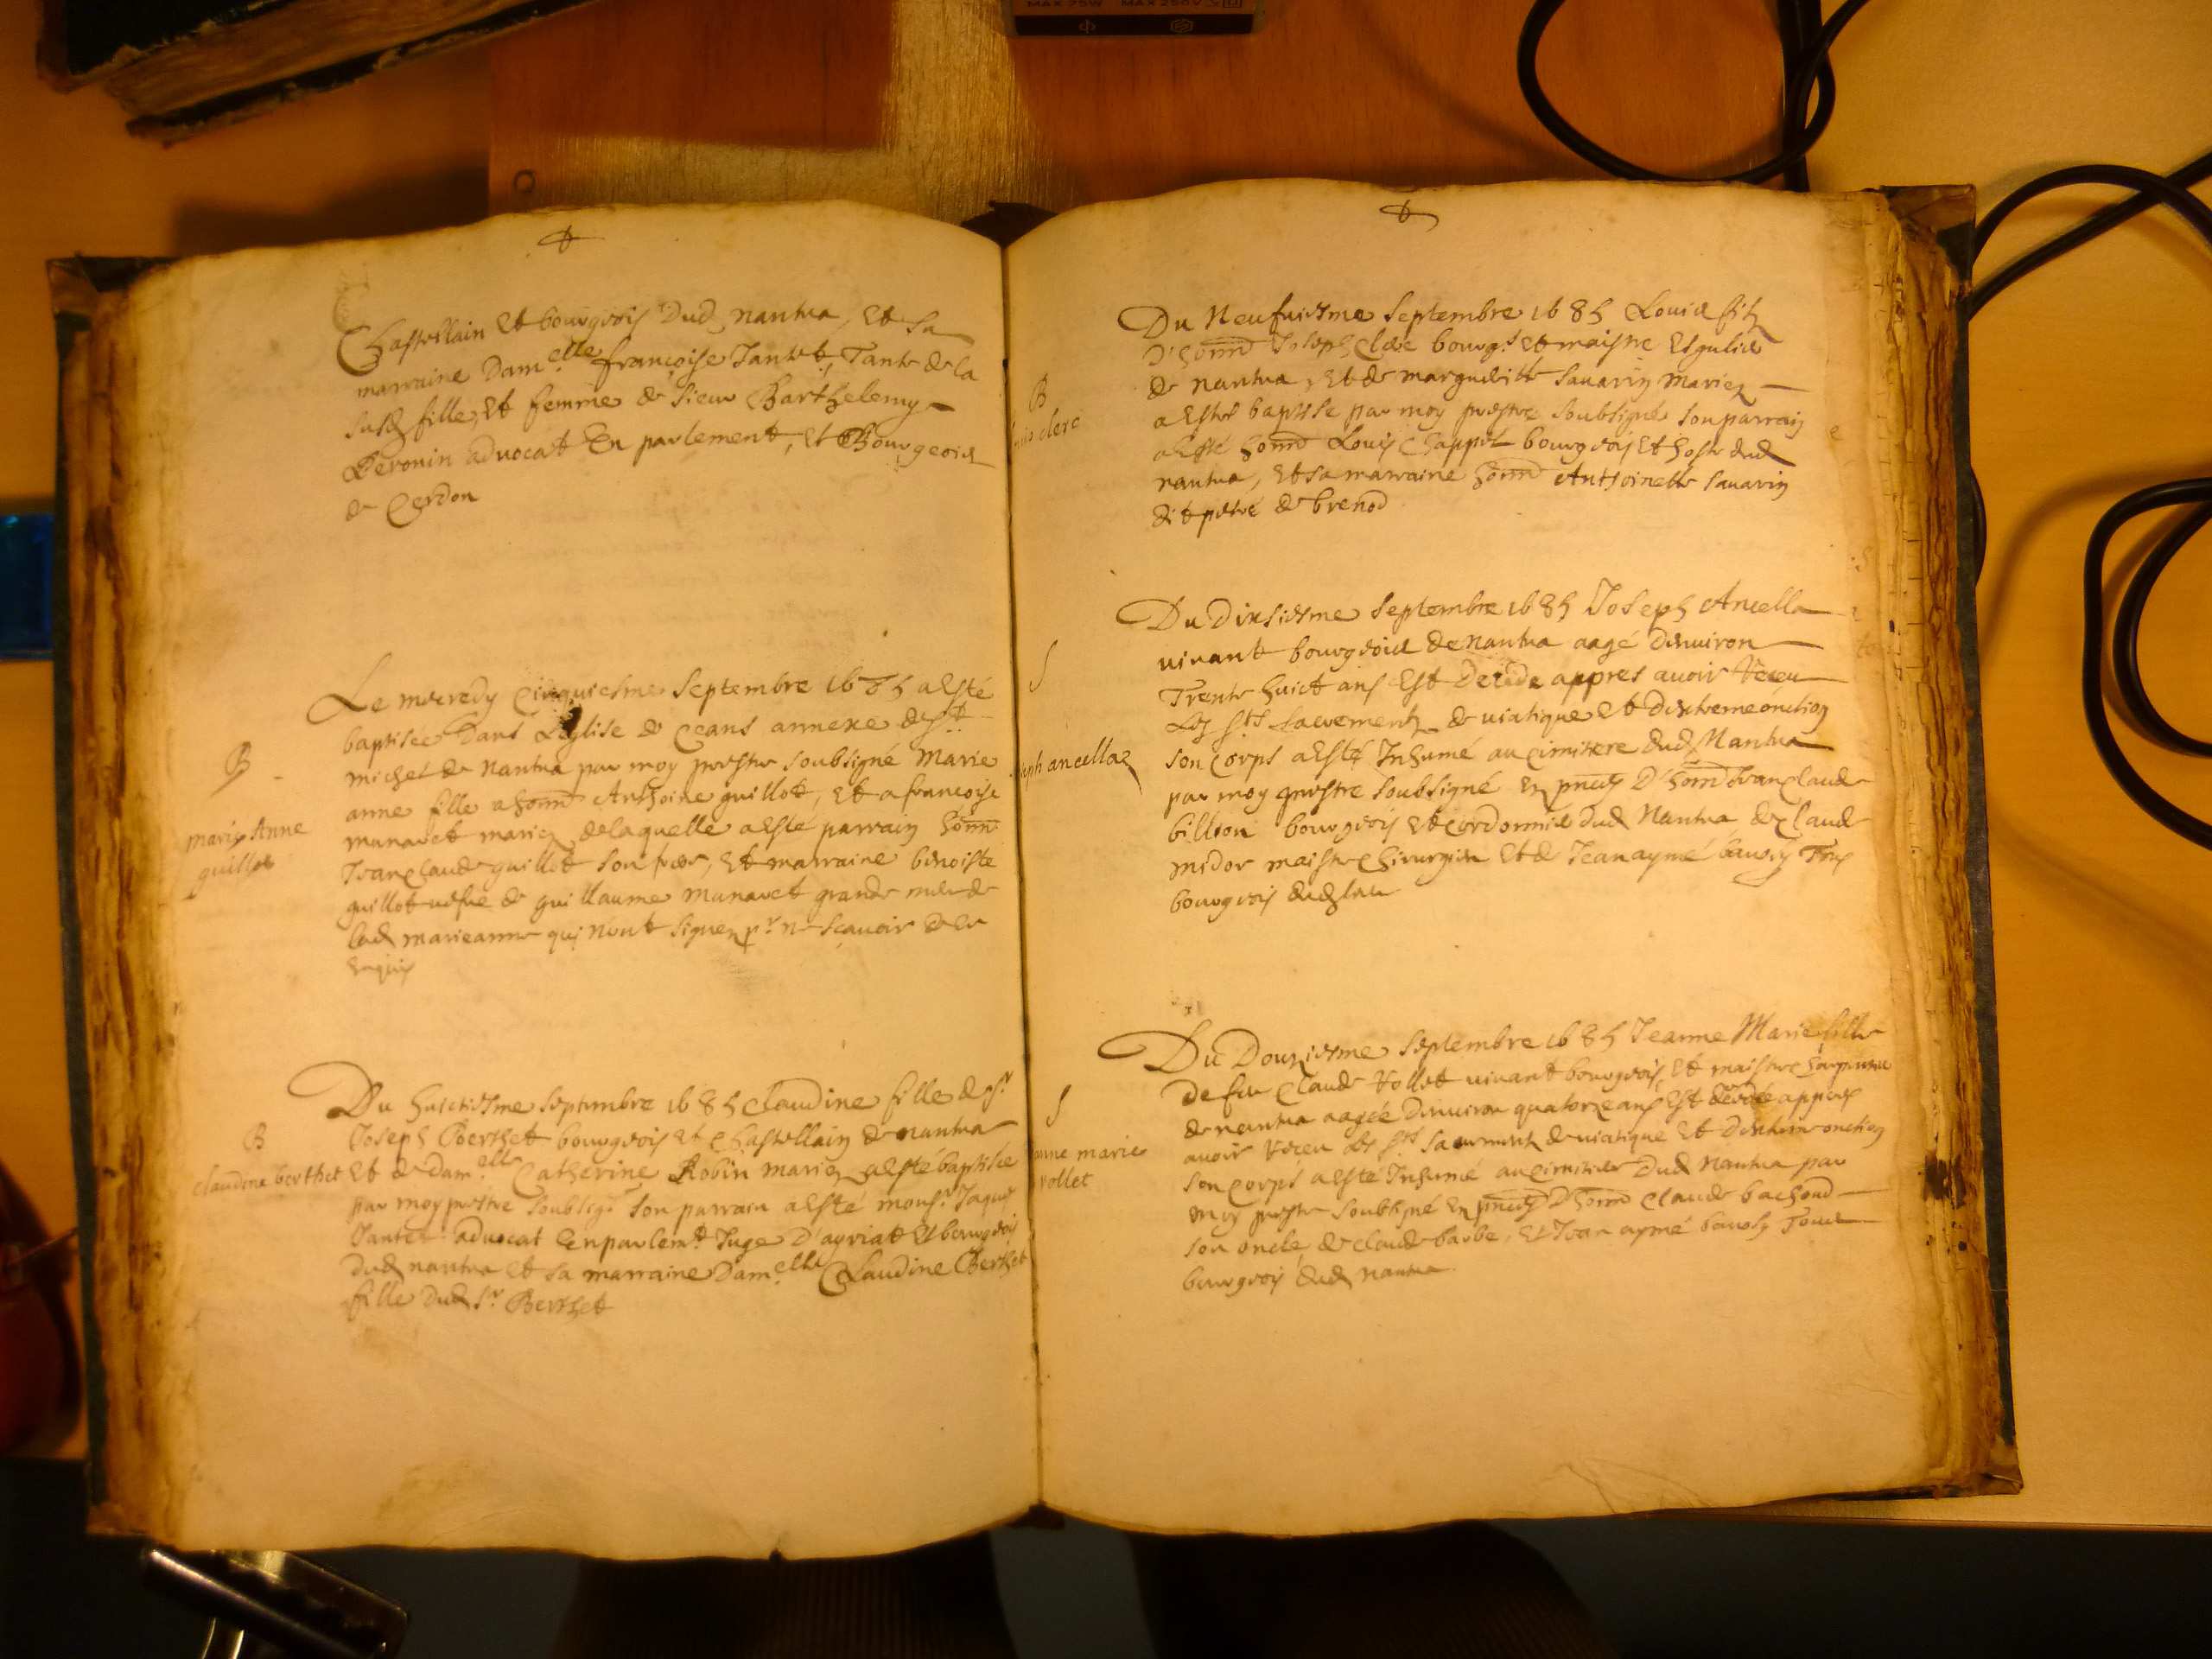 MAX 75W MAX 250V
Chastellain Et bourgeois Dud nantua, Et Sa
marraine Dam.elle françoise Jantet, Tante de la
susd fille, Et femme de sieur Barthelemy
Peronin advocat En parlement, Et Bourgeois
de Cerdon
Le mecredy Cinquiesme Septembre 1685 a Esté
baptisée Dans L'église de Ceans annexe de St
michel de Nantua par moy prestre soubsigné Marie
anne fille a honn Anthoine guillot, Et a francoise
munaret mariez de laquelle a Esté parrain honn
Jean Claude guillot son frere, Et marraine benoiste
guillot vefve de guillaume munaret grande mere de
lad marieanne qui n'ont signer pr ne sçavoir de ce
Enquis
B
marie Anne
guillot
Du huictiesme septembre 1685 Claudine fille de sr
Joseph Berthet bourgeois Et Chastellain de nantua
Et de Dam.elle Catherine Robin mariez a Esté baptisée
par moy prestre soubsig. son parrain a Esté monsr Jaques
Jantet advocat En parlemt Juge D'apriat Et bourgeois
dud nantua Et sa marraine Dam.elle Claudine Berthet
fille Dud Sr Berthet
B
claudine berthet
Du Neufuiesme Septembre 1685 Louis filz
D'honn Joseph Clerc bourgs Et maistre
de nantua, Et de margueritte Savarin Mariez
a Esté baptise par moy prestre soubsigné son parrain
a Esté honn Louis Chappel bourgeois Et hoste dud
nantua, Et sa marraine honn Anthoinette Savarin
dit petre de brenod
B
clerc
Du Dixsiesme Septembre 1685 Joseph Ancella
vivant bourgeois de nantua aagé d'environ
Trente huict ans Est Decede appres avoir Receu
Les sts Sacrements de viatique Et D'extreme onction
son Corps a Esté Inhumé au Cimitiere dud Nantua
par moy prestre soubsigné En pnces D'honn Jean Claude
billion bourgeois Et cordonnier dud Nantua, de Claude
midor maistre Chirurgien Et de Jean aymé
bourgeois dud lieu
S
ancellaz
Du Douziesme Septembre 1685 Jeanne Marie fille
De feu Claude Vollet vivant bourgeois Et maistre
de nantua aagée D'environ quatorze ans Est decedée appres
avoir Receu Les Sts Sacrements de viatique Et D'extreme onction
son Corps a Esté Inhumé au Cimitiere Dud Nantua par
moy prestre soubsigné En pnces D'honn Claude bachond
son oncle, de Claude barbe, Et Jean aymé
bourgeois dud nantua
S
marie
vollet